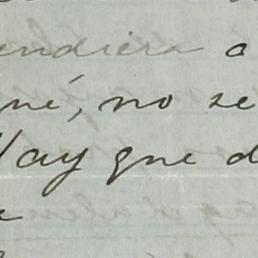 endiera a
né, no se
Hay que d